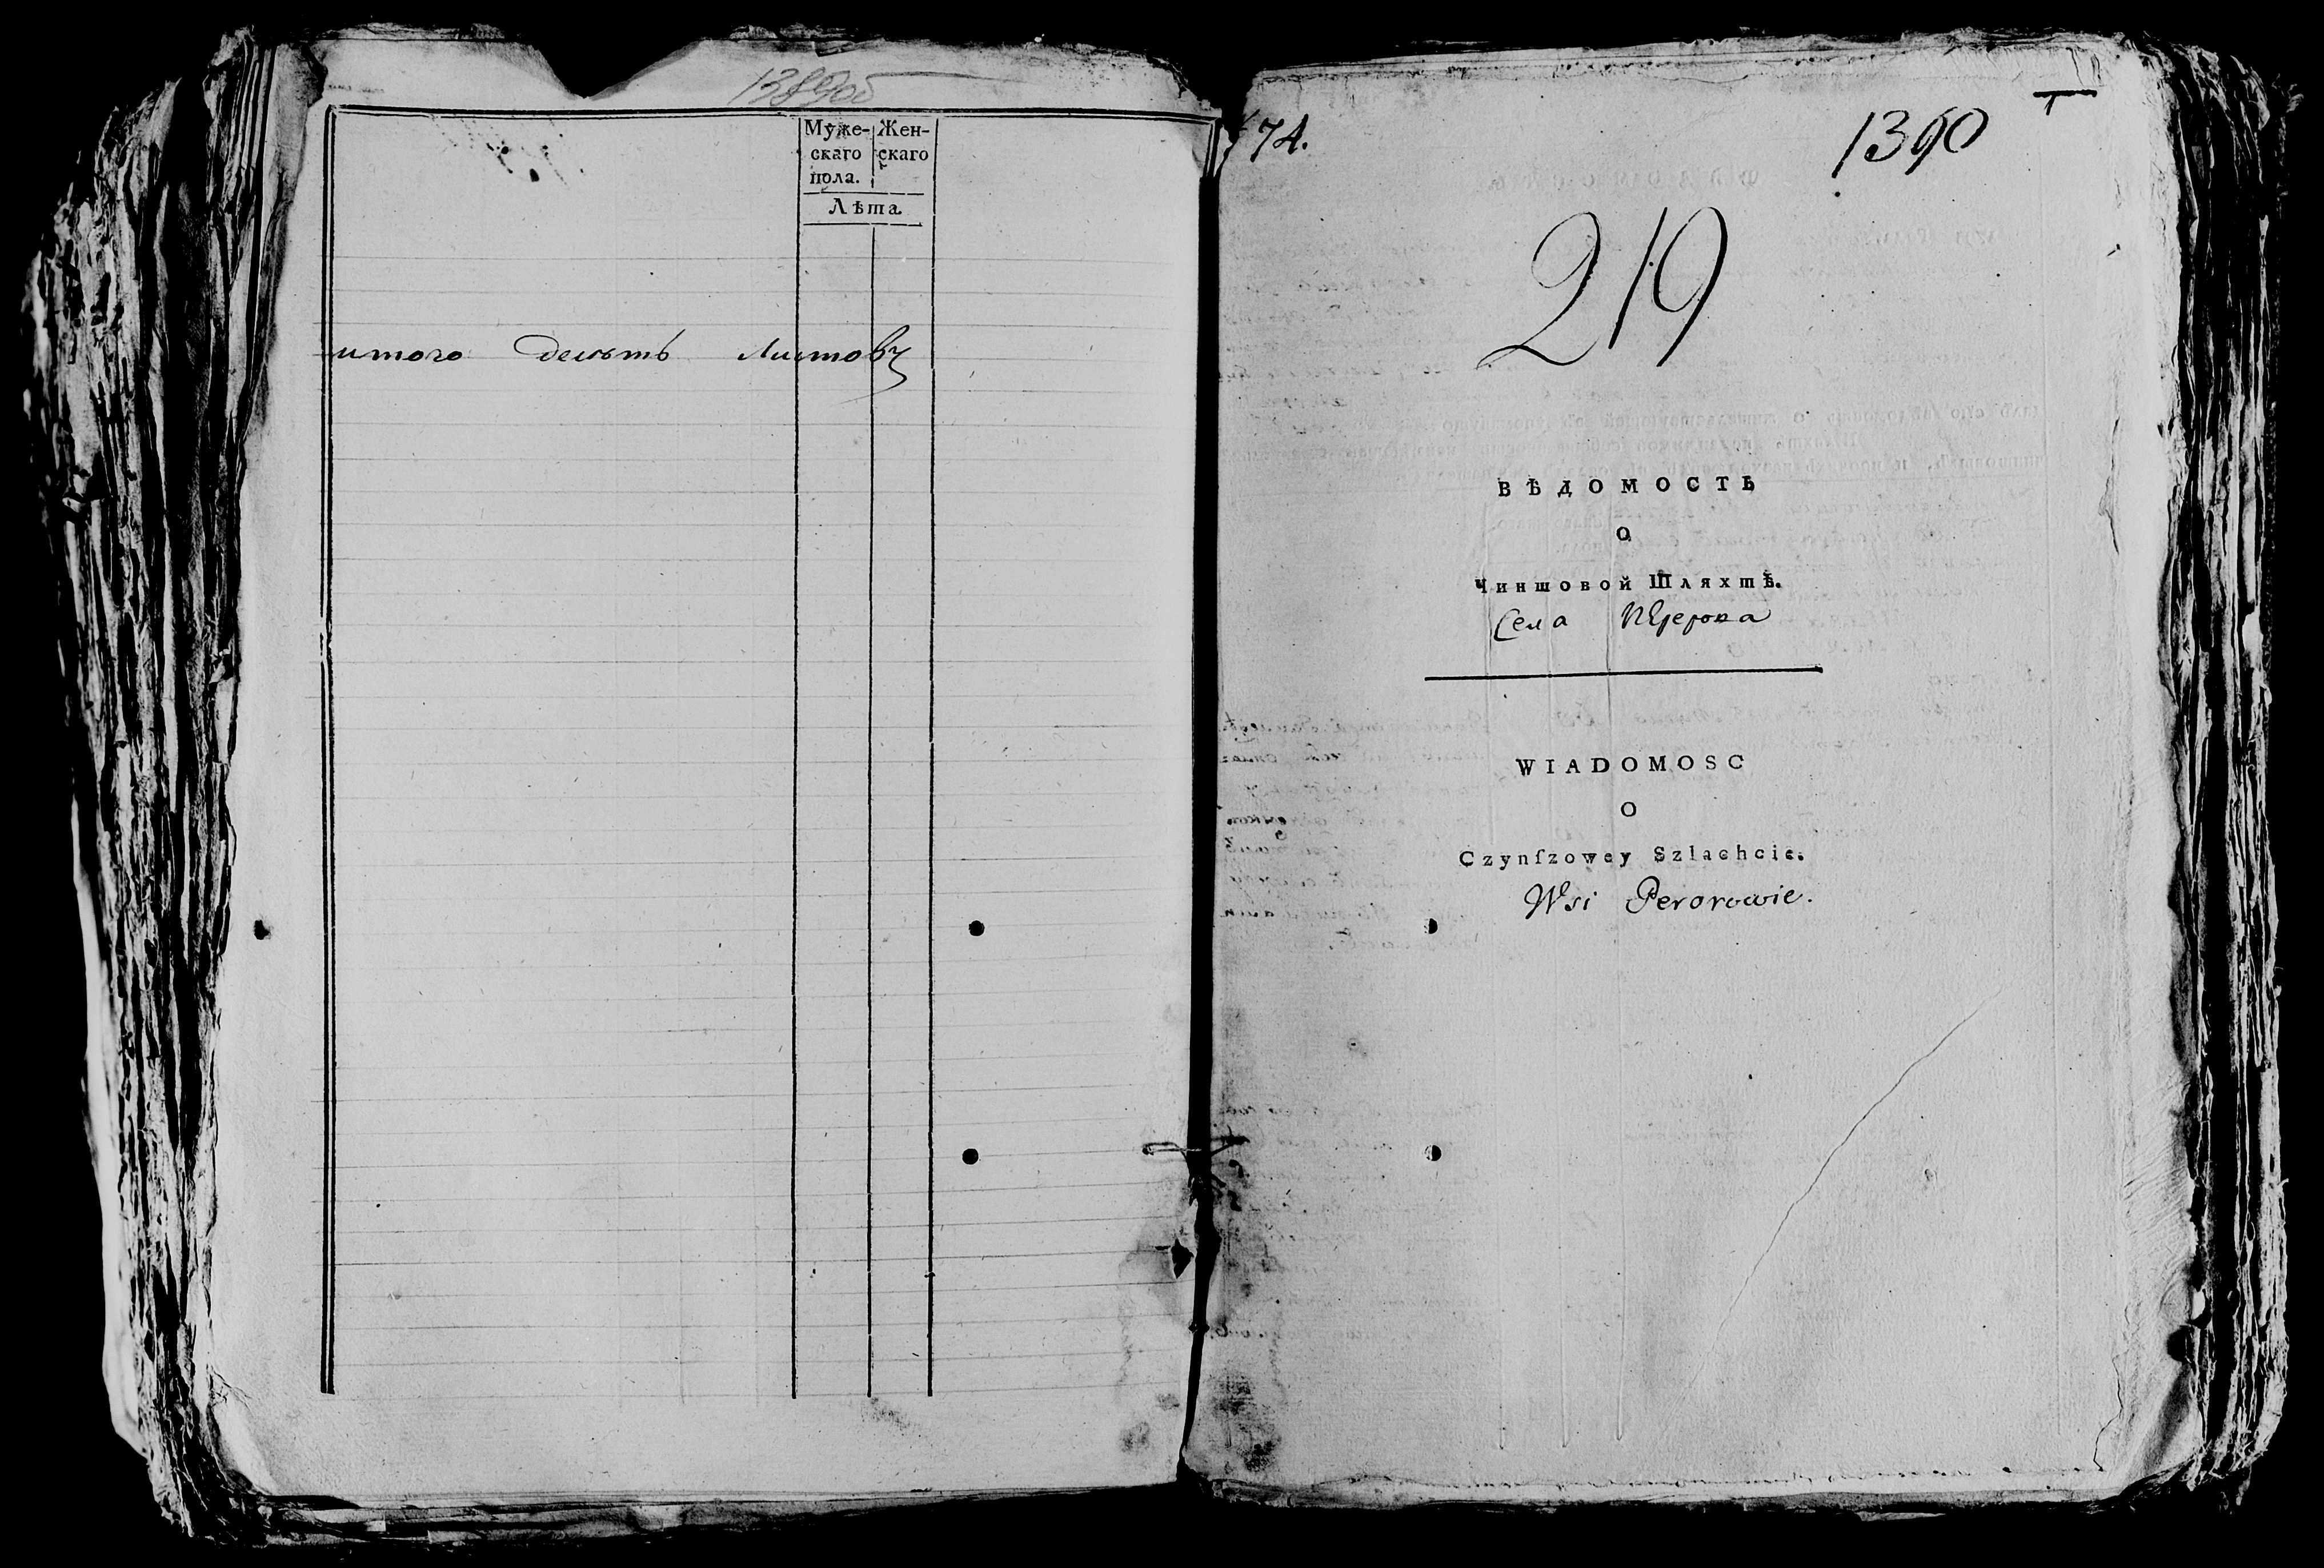 1389об
Муже- Жен-
скаго скаго
пола.
Лѣта
итого десять листовъ
74.
1390
219
ВѢДОМОСТЬ
О
Чиншовой Шляхтѣ.
Села
WIADOMOSC
O
Czynſzowey Szlachcie.
Wsi Perorowie.